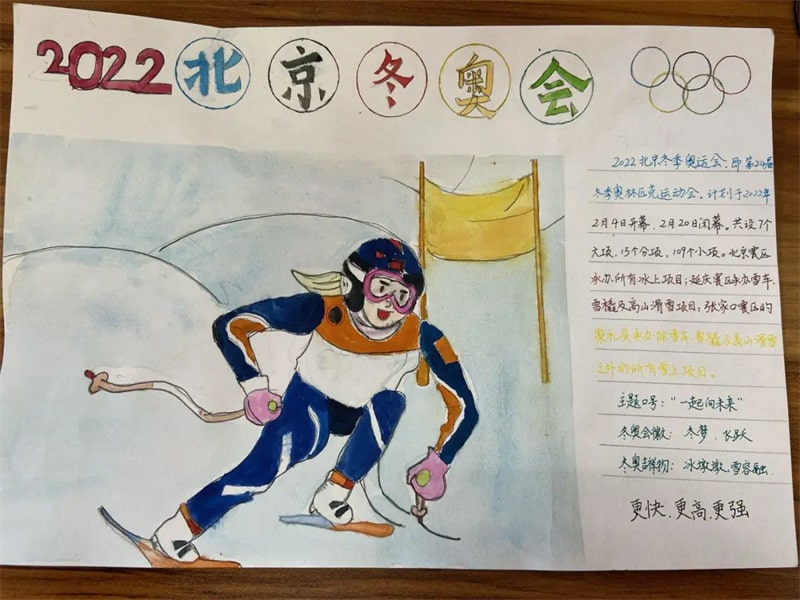 2022北京冬奥会
2022北京冬季奥运会，即第24届
冬季奥林匹克运动会，计划于2022年
2月4日开幕，2月20日闭幕。共设7个
大项，15个分项，109个小项。北京赛区
承办所有冰上项目；延庆赛区承办雪车、
雪橇及高山滑雪项目；张家口赛区的
崇礼区承办除雪车、雪橇及高山滑雪
之外的所有雪上项目。
主题口号："一起向未来"
冬奥会徽：冬梦、长跃
冬奥吉祥物：冰墩墩、雪容融
更快、更高、更强